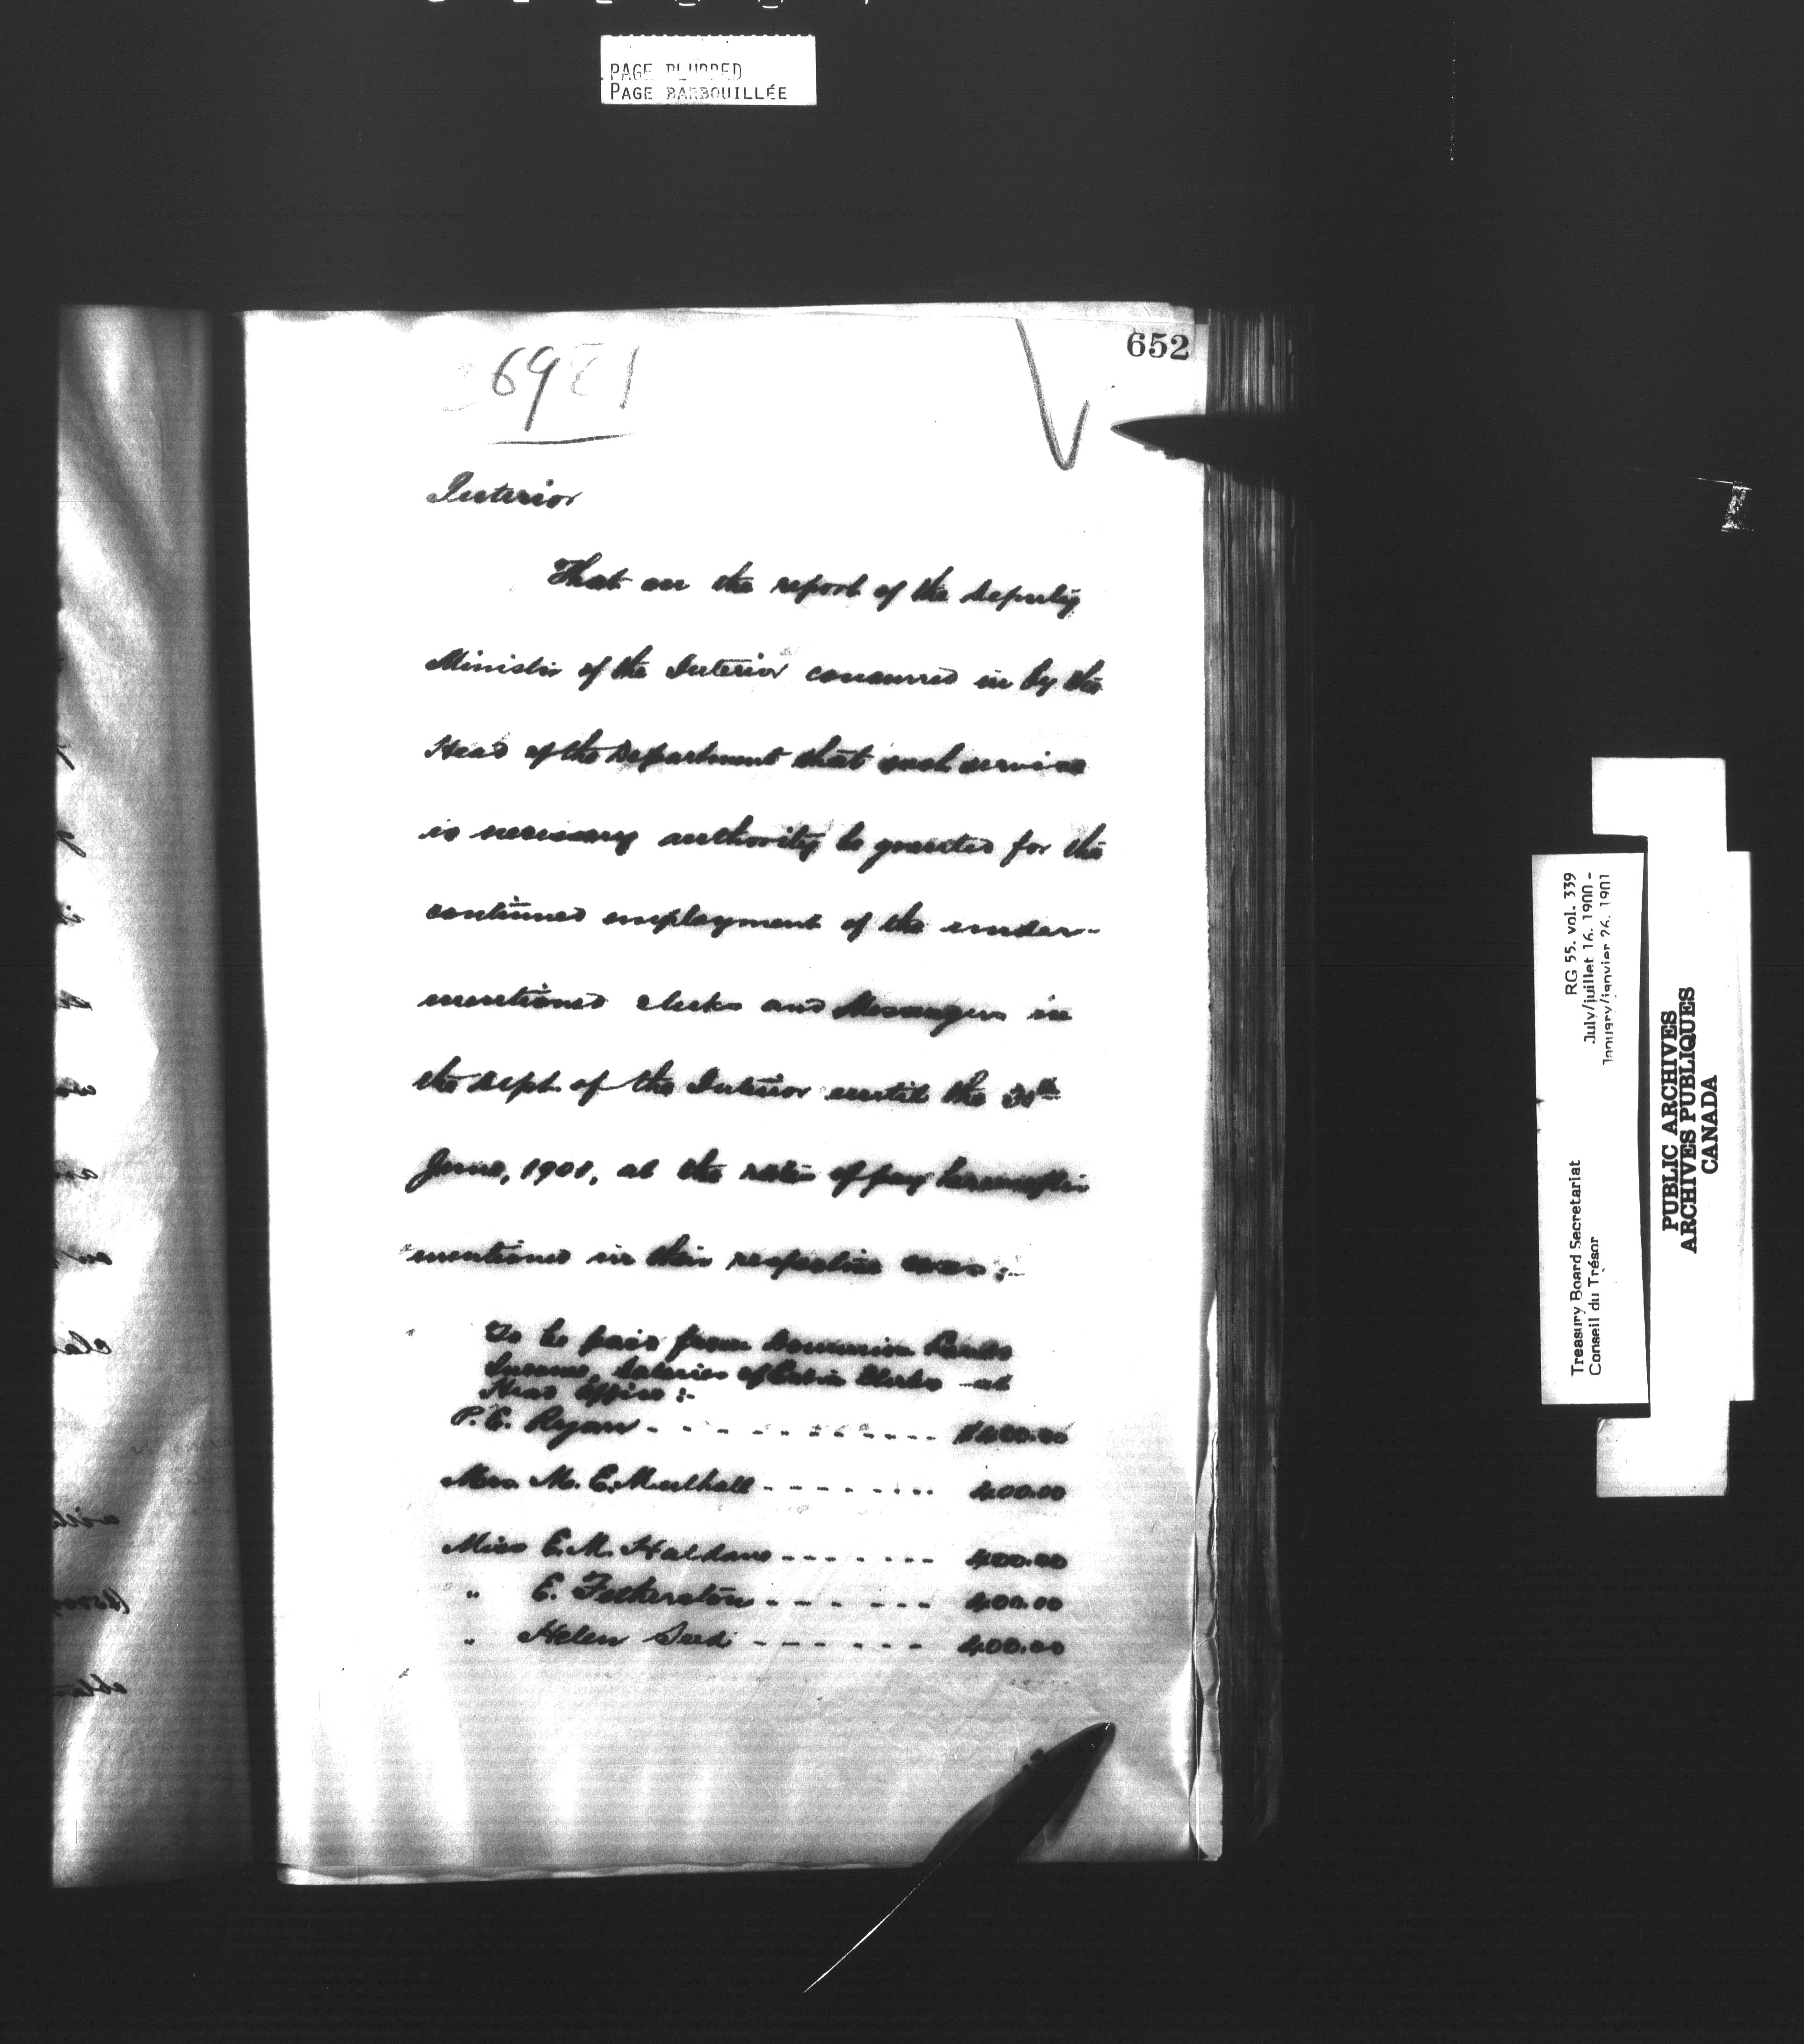 PAGE BLURRED
PAGE BARBOUILLÉE
652
Interior
That on the report of the Deputy
Minister of the Interior concurred in by the
Head of the Department that such service
is necessary authority be granted for the
continued employment of the under-
mentioned clerks and Messengers in
the Dept. of the Interior until the 30th
June, 1901, at the rates of pay hereinafter
mentioned in their respective cases :-
To be paid from Dominion Lands
Income, Salaries of Extra Clerks at
Head Office :-
P. E. Ryan - - - - - - - - - - - -
Mrs. M. E. Mulhall - - - - - - - - 400.00
Miss E. M. Haldane - - - - - - - 400.00
" E. Fetherston - - - - - - - 400.00
" Helen - - - - - - - 400.00
RG 55. vol. 339
July/juillet 16. 1900 -
January/janvier 26. 1901
Treasury Board Secretariat
Conseil du Trésor
PUBLIC ARCHIVES
ARCHIVES PUBLIQUES
CANADA